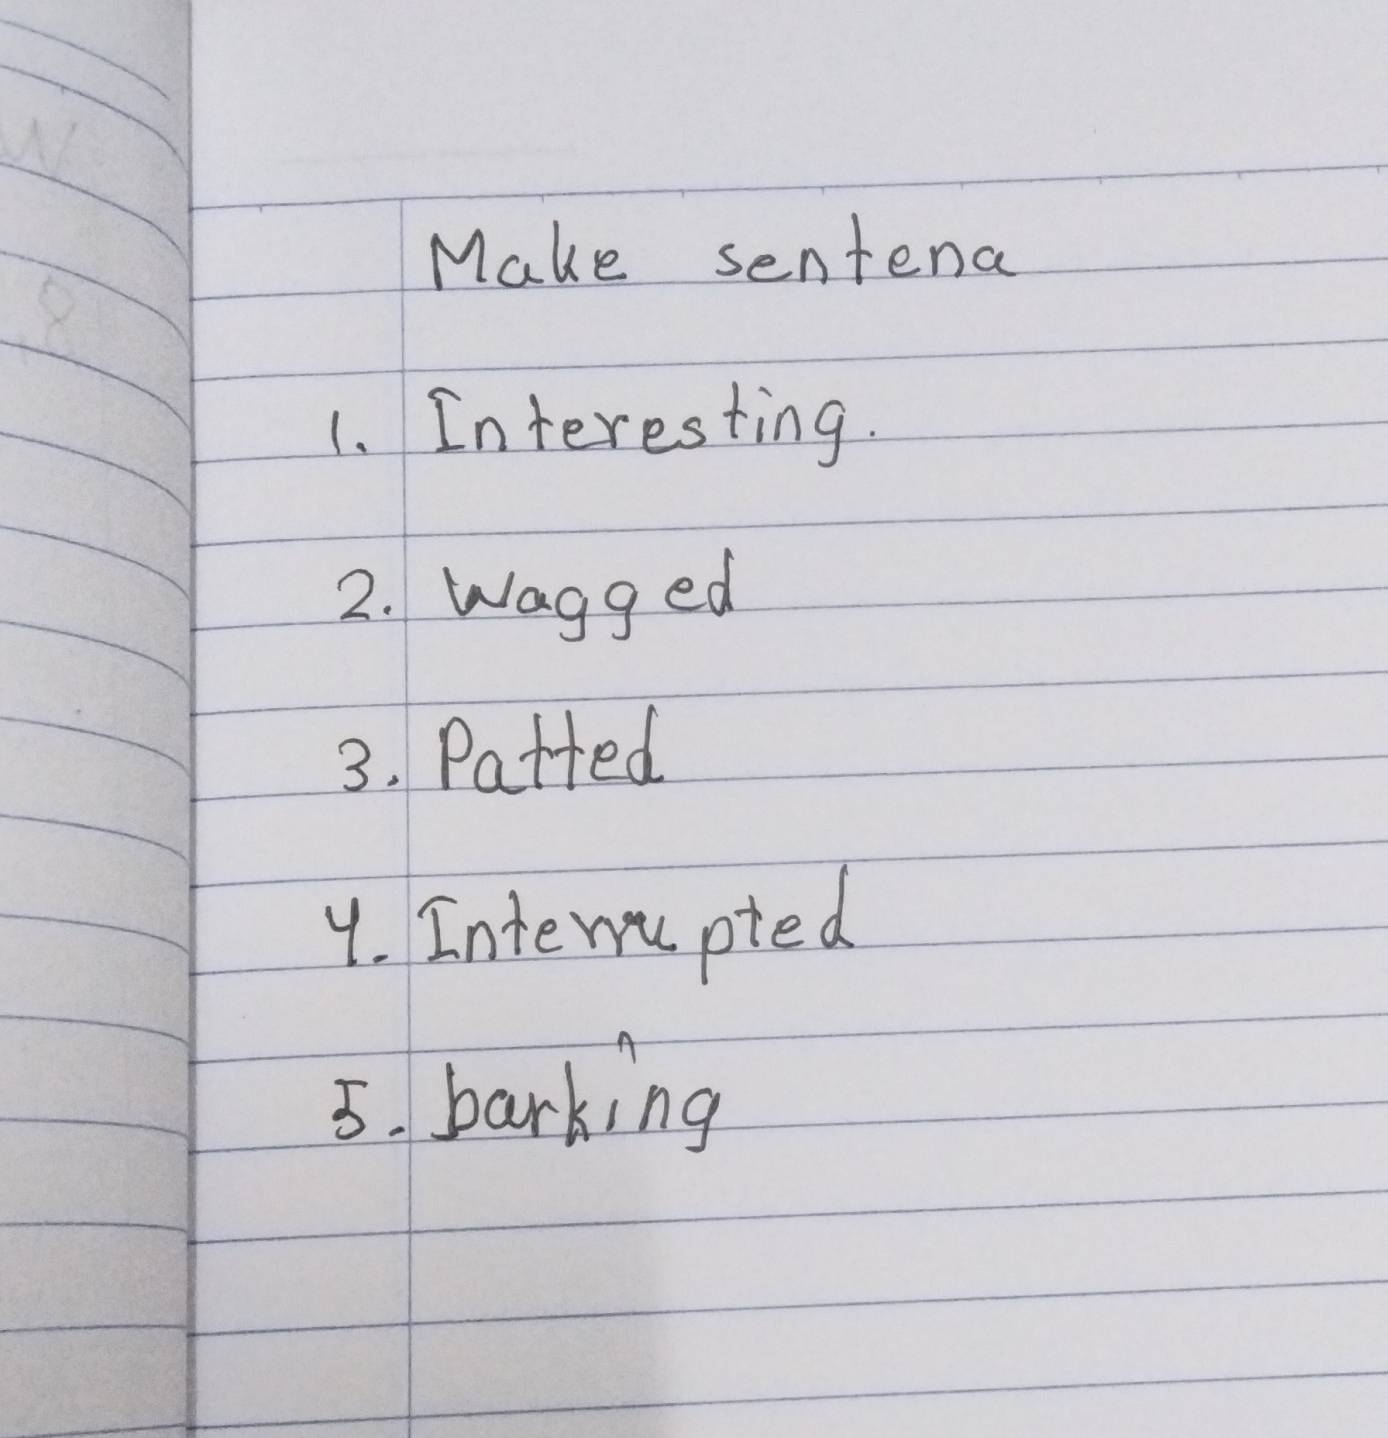 Make sentena
1. Interesting.
2. Wagged
3. Patted
4. Interrupted
5. barking